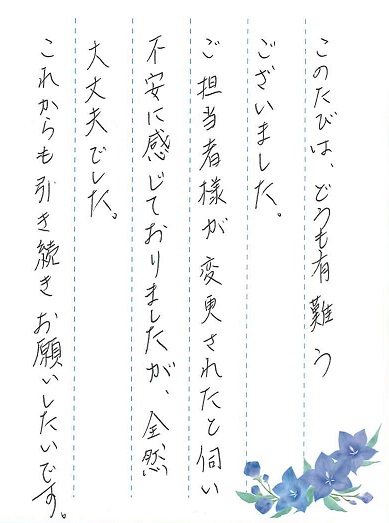 このたびは、どうも有難う
ございました。
ご担当者様が変更されたと伺い
不安に感じておりましたが、全然
大丈夫でした。
これからも引き続きお願いしたいです。